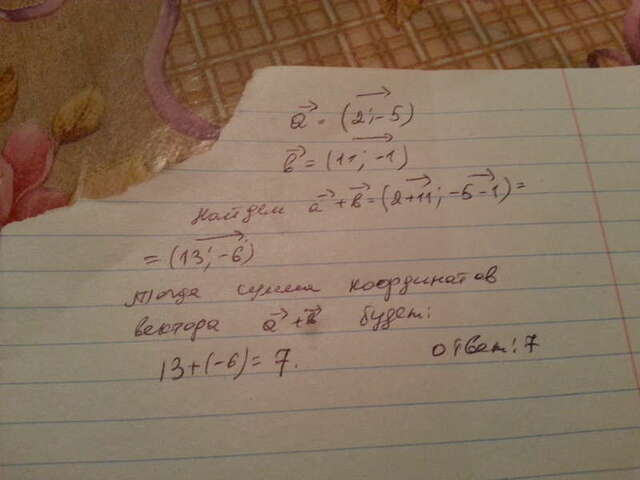 a⃗ = (2; -5)
b⃗ = (11; -1)
Найдем a⃗ + b⃗ = (2+11; -5-1) =
= (13; -6)
Тогда сумма координатов
вектора a⃗ + b⃗ будет:
13+(-6) = 7. ответ: 7